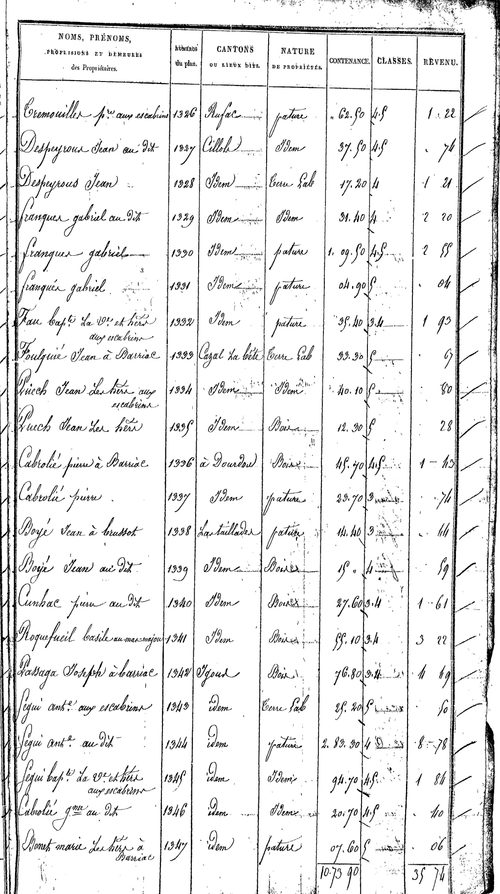 NOMS, PRÉNOMS, PROFESSIONS ET DEMEURES des Propriétaires. NUMÉROS du plan. CANTONS OU LIEUX DITS. NATURE DE PROPRIÉTÉS. CONTENANCE. CLASSES. REVENU.
Tremouilles pre aux escabrins 1326 Rufac pature " 62.50 4.5 1 . 22
Despeyrous Jean au dit 1327 Cillols Idem 37.50 4.5 . 74
Despeyrous Jean 1328 Idem Terre Lab 17.20 4 1 21
franques gabriel au dit 1329 Idem Idem 31.40 4 2 20
franques gabriel 1330 Idem pature 1. 09.50 4.5 2 55
franqués gabriel 1331 Idem pature 04.90 5 . 04
Fau bapte La Ve et hers aux escabrins 1332 Idem pature 35.40 3.4 1 93
Foulquié Jean à Barriac 1333 Cazal La bête Terre Lab 33.30 5 67
Puech Jean Les hers aux escabrins 1334 Idem Idem 40.10 5 . 80
Puech Jean Les hers 1335 Idem Bois 12.30 5 28
Cabrolié pierre à Barriac 1336 à Dourdou Bois 45.70 4.5 1 - 43
Cabrolié pierre . 1337 Idem pature 23.70 3 . 74
Boyé Jean à brussot 1338 Las taillades pature 14.40 3 . 44
Boyé Jean au dit 1339 Idem Bois 15 " 4 59
Cunhac pierre au dit 1340 Idem Bois 27.60 3.4 1 . 61
Roquefueil basile au mas majou 1341 Idem Bois 55.10 3.4 3 22
Passaga Joseph à barriac 1342 Igous Bois 76.80 3.4 4 69
Ségui ante aux escabrins 1343 idem Terre Lab 25.20 5 50
Ségui ante au dit 1344 idem pature 2. 83.30 4 8 - 78
Ségui bapte La Ve et hers aux escabrins 1345 idem Idem 94.70 4.5 1 84
Cabrolié gme au dit 1346 idem Idem 20.70 4.5 . 40
Bonet marie Les hers à Barriac 1347 idem pature 07.60 5 . 06
10.73 90 35 74